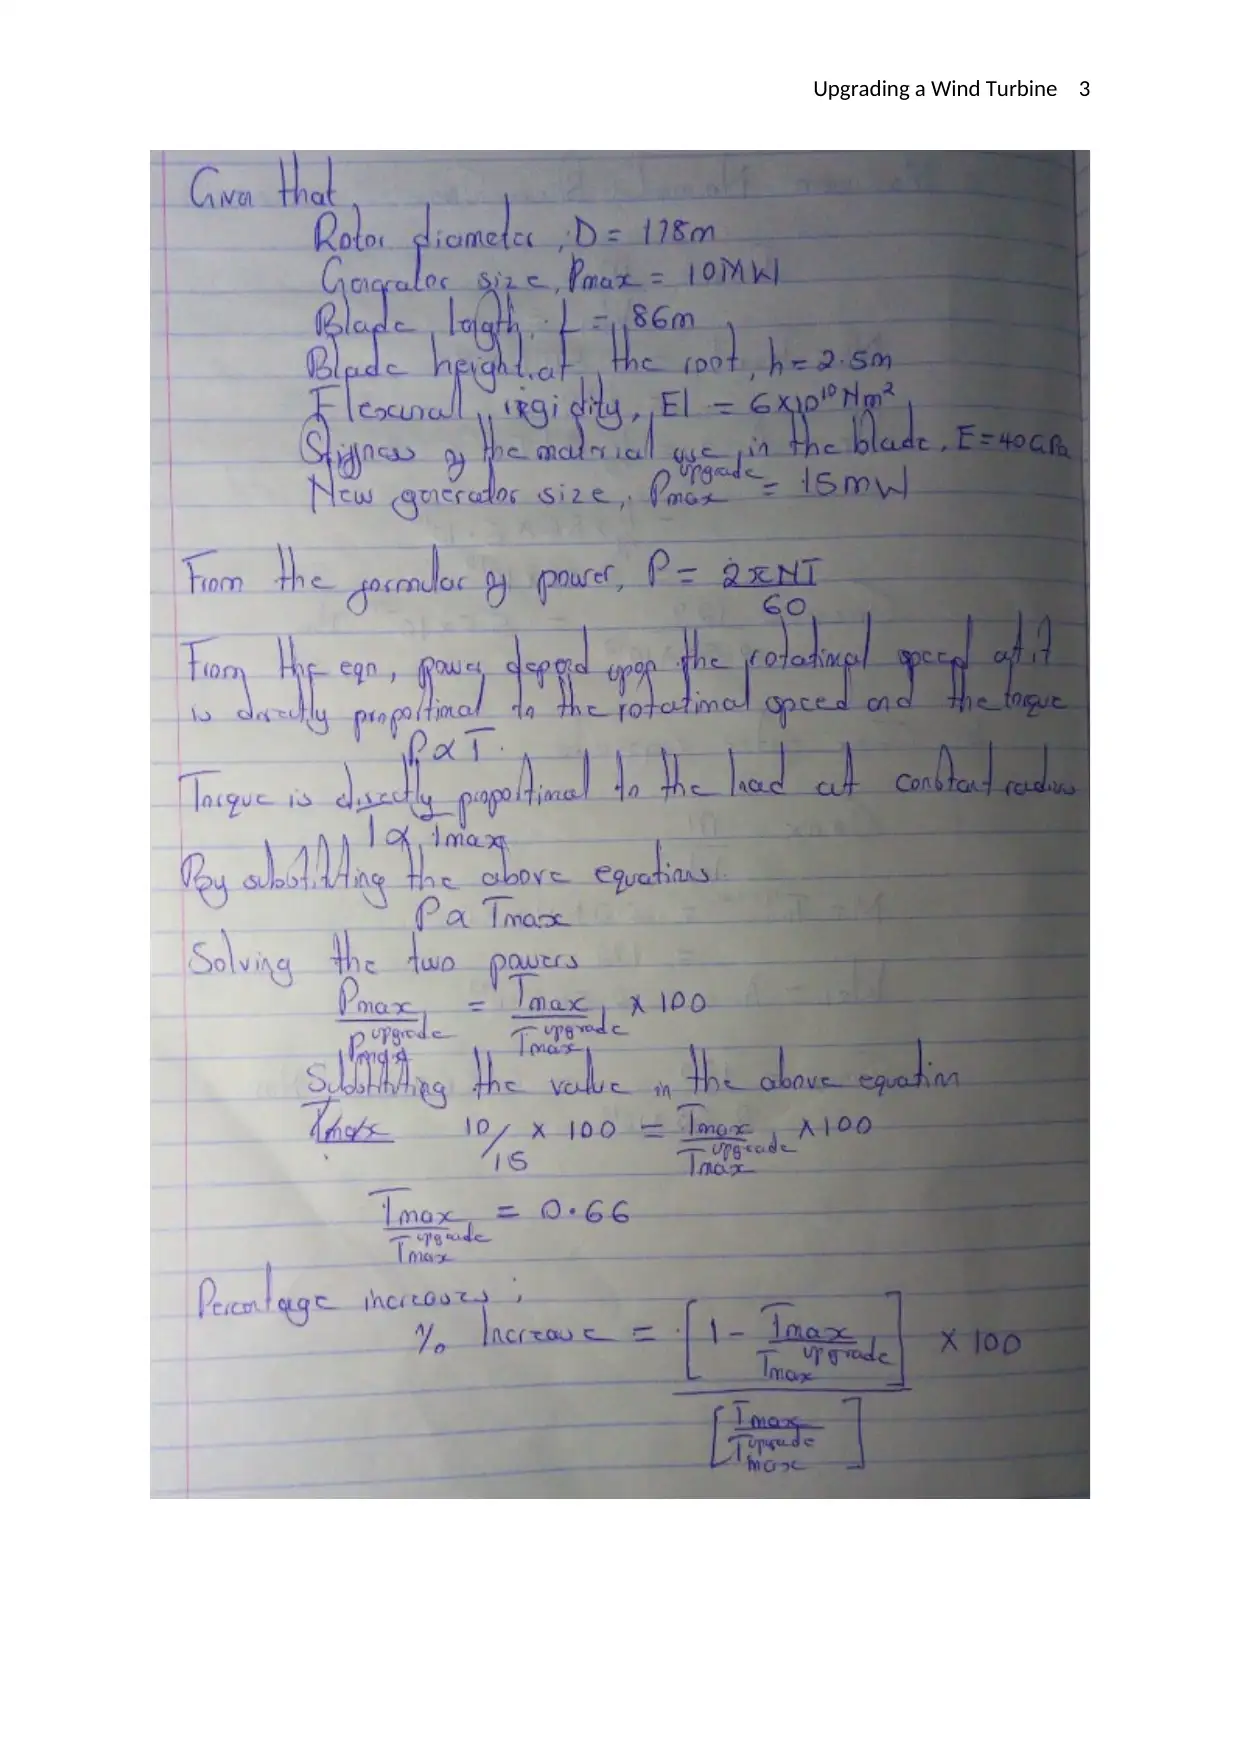 Upgrading a Wind Turbine 3
Given that
Rotor diameter, D = 178m
Generator size, Pmax = 10MW
Blade length, L = 86m
Blade height at the root, h = 2.5m
Flexural rigidity, EI = 6x10¹⁰ Nm²
Stiffness of the material use in the blade, E = 40GPa
New generator size, Pmax upgrade = 15MW
From the formular of power, P = 2πNT / 60
From the eqn, power depend upon the rotational speed as it
is directly proportional to the rotational speed and the torque
P α T
Torque is directly proportional to the load at constant radius
T α Tmax
By substituting the above equations
P α Tmax
Solving the two powers
Pmax / Pmax upgrade = Tmax / Tmax upgrade x 100
Substituting the value in the above equation
10/15 x 100 = Tmax / Tmax upgrade x 100
Tmax / Tmax upgrade = 0.66
Percentage increases;
% Increase = [1 - Tmax / Tmax upgrade] x 100
[Tmax / Tmax upgrade]